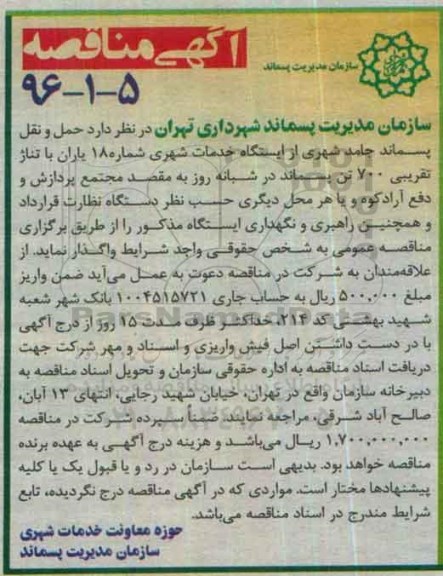 آگهی مناقصه
سازمان مدیریت پسماند
۹۶-۱-۵
سازمان مدیریت پسماند شهرداری تهران در نظر دارد حمل و نقل
پسماند جامد شهری از ایستگاه خدمات شهری شماره۱۸ یاران با تناژ
تقریبی ۷۰۰ تن پسماند در شبانه روز به مقصد مجتمع پردازش و
دفع آرادکوه و یا هر محل دیگری حسب نظر دستگاه نظارت قرارداد
و همچنین راهبری و نگهداری ایستگاه مذکور را از طریق برگزاری
مناقصه عمومی به شخص حقوقی واجد شرایط واگذار نماید. از
علاقه‌مندان به شرکت در مناقصه دعوت به عمل می‌آید ضمن واریز
مبلغ ۵۰۰,۰۰۰ ریال به حساب جاری ۱۰۰۴۵۱۵۷۲۱ بانک شهر شعبه
شهید بهشتی کد ۲۱۴، حداکثر ظرف مدت ۱۵ روز از درج آگهی
با در دست داشتن اصل فیش واریزی و اسناد و مهر شرکت جهت
دریافت اسناد مناقصه به اداره حقوقی سازمان و تحویل اسناد مناقصه به
دبیرخانه سازمان واقع در تهران، خیابان شهید رجایی، انتهای ۱۳ آبان،
صالح آباد شرقی، مراجعه نمایند. ضمناً سپرده شرکت در مناقصه
۱,۷۰۰,۰۰۰,۰۰۰ ریال می‌باشد و هزینه درج آگهی به عهده برنده
مناقصه خواهد بود. بدیهی است سازمان در رد و یا قبول یک یا کلیه
پیشنهادها مختار است. مواردی که در آگهی مناقصه درج نگردیده، تابع
شرایط مندرج در اسناد مناقصه می‌باشد.
حوزه معاونت خدمات شهری
سازمان مدیریت پسماند